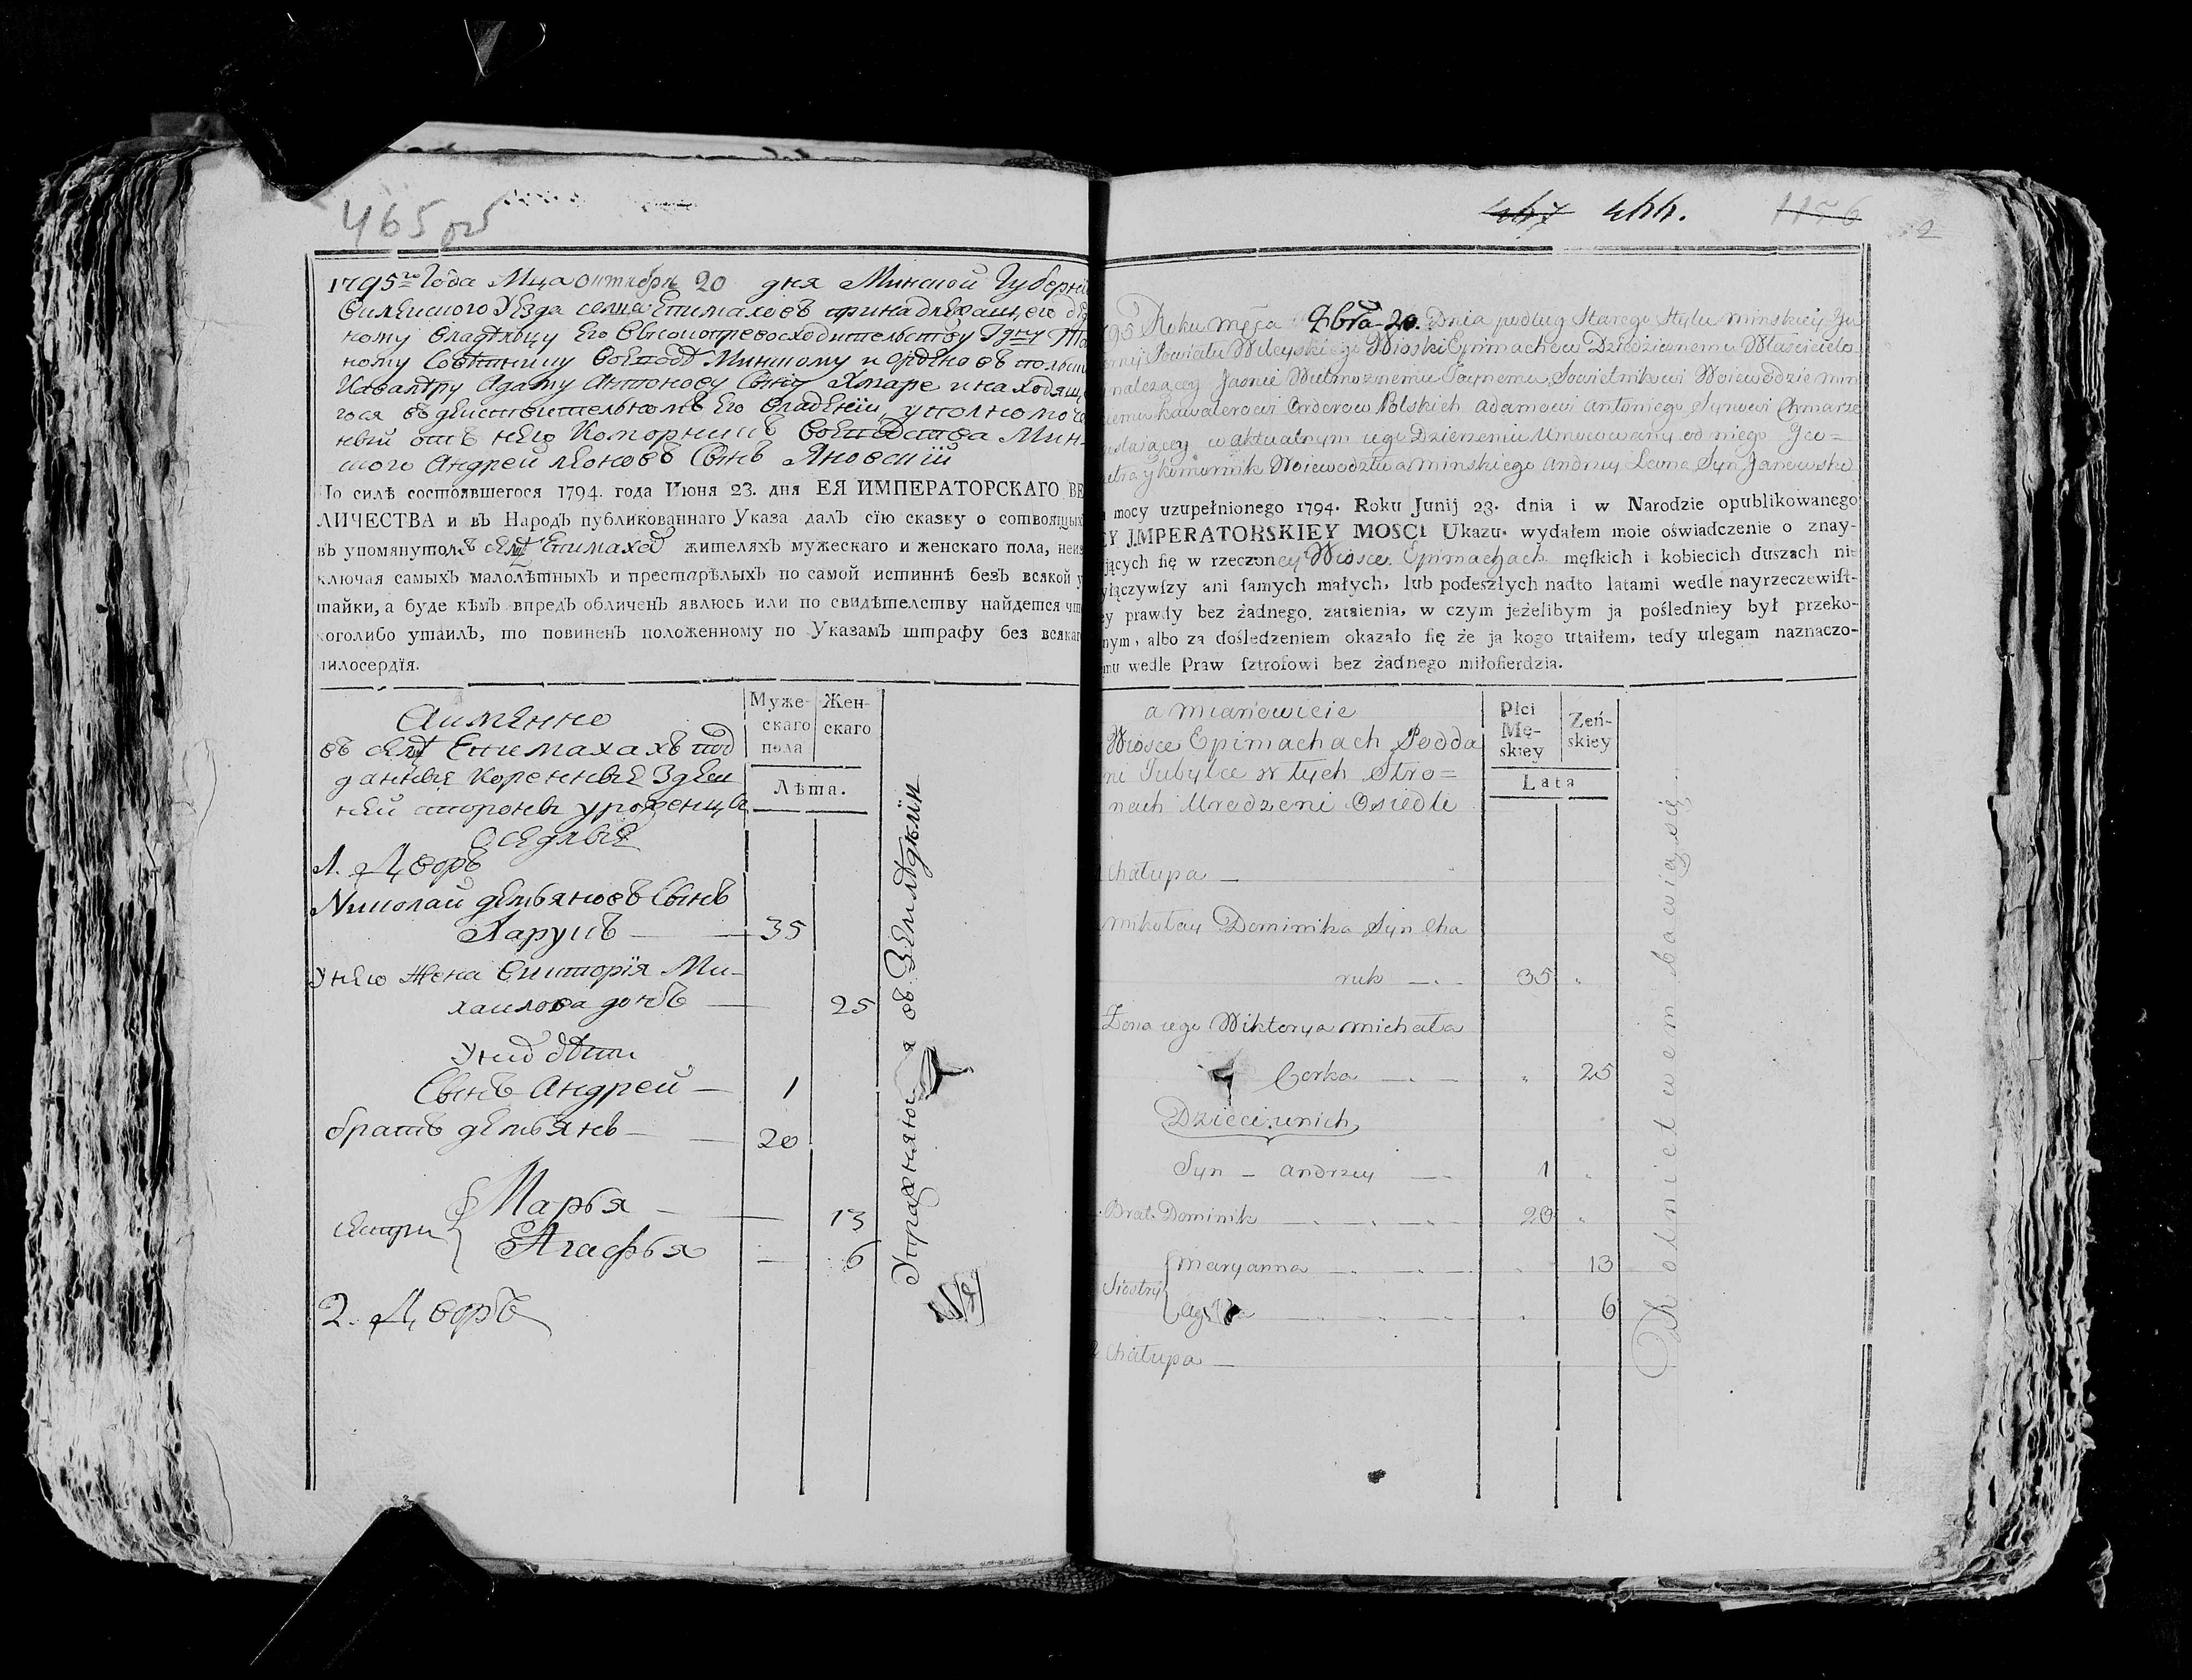 465 об
1795го Года Мца октября 20 дня Минской Губерни
Вилейского Уезда села Епимахов принадлежащего
ному владѣльцу Его высокопревосходительству
ному Совѣтнику Воевод Минскому и ордено въ польски
Кавалеру Адаму Антонову сыну Хмаре и находящ
гося в действительномъ Его владѣнїи, уполномоче
ный отъ него Коморникъ Воеводства Мин-
ского Андрей Леоновъ Сынъ Яновскiй
По силѣ состоявшегося 1794. года Июня 23. дня ЕЯ ИМПЕРАТОРСКАГО ВЕ
ЛИЧЕСТВА и въ Народъ публикованнаго Указа далъ сїю сказку о сотвоящыхъ
въ упомянутомъ селѣ Епимахов жителяхъ мужескаго и женскаго пола, неис
ключая самыхъ малолѣтныхъ и престарѣлыхъ по самой истиннѣ безъ всякой у
тайки, а буде кѣмъ впредъ обличенъ явлюсь или по свидѣтелству найдется что
коголибо утаилъ, то повиненъ положенному по Указамъ штрафу без всякаг
милосердїя.
Аименно
въ селѣ Епимахахъ под
данные коренные здеш
ней стороны уроженцы
Оседлые
Муже-
скаго
пола
Жен-
скаго
Лѣта.
1. Дворъ
Николай демьяновъ Сынъ
Харукъ — 35
У него Жена Виктория Ми-
хаилова дочь — 25
У них дѣти
Сынъ Андрей — 1
братъ демьянъ — 20
сестры Марья — 13
Агафья — 6
2. Дворъ
Упражняются въ Земледѣлїи
447 444. 1176
2
795 Roku męsca 8bra 20. Dnia podług Starego Stylu minskiey Gu
Powiatu Wileyskiego Wioski Epimachow Dziedzicznemu Właścicielo
nalezącey Jasnie Wielmoznemu Taynemu Sowietnikowi Woiewodzie min
iemu Kawalerowi Orderow Polskich Adamowi Antoniego Synowi Chmarze
zostaiącey w aktualnym iego Dzierzeniu Umocowany od niego Jeo=
metra y komornik Woiewodztwa minskiego Andrzey Leona Syn Janowski
mocy uzupełnionego 1794. Roku Junij 23. dnia i w Narodzie opublikowanego
EY JMPERATORSKIEY MOSCI Ukazu. wydałem moie oświadczenie o znay-
jących ſię w rzeczoney Wiosce Epimachach męſkich i kobiecich duszach nie
yłączywſzy ani ſamych małych, lub podeszłych nadto latami wedle nayrzeczewiſt-
ey prawdy bez żadnego, zataienia, w czym jeżelibym ja pośledniey był przeko-
nym, albo za dośledzeniem okazało ſię że ja kogo utaiłem, tedy ulegam naznaczo-
mu wedle Praw ſztrofowi bez żadnego miłoſierdzia.
a mianowicie
Wiosce Epimachach Podda
ni Tubylce w tych Stro=
nach Urodzeni Osiedli
Płci
Mę-
skiey
Zeń-
skiey
Lata
Chałupa —
Mikołay Dominika Syn Cha
ruk — 35
Zona iego Wiktorya Michała
Corka — 25
Dzieci u nich
Syn — Andrzey — 1
Brat Dominik — 20
Siostry Maryanna — 13
Agata — 6
2 Chałupa —
Rolnictwem bawią się